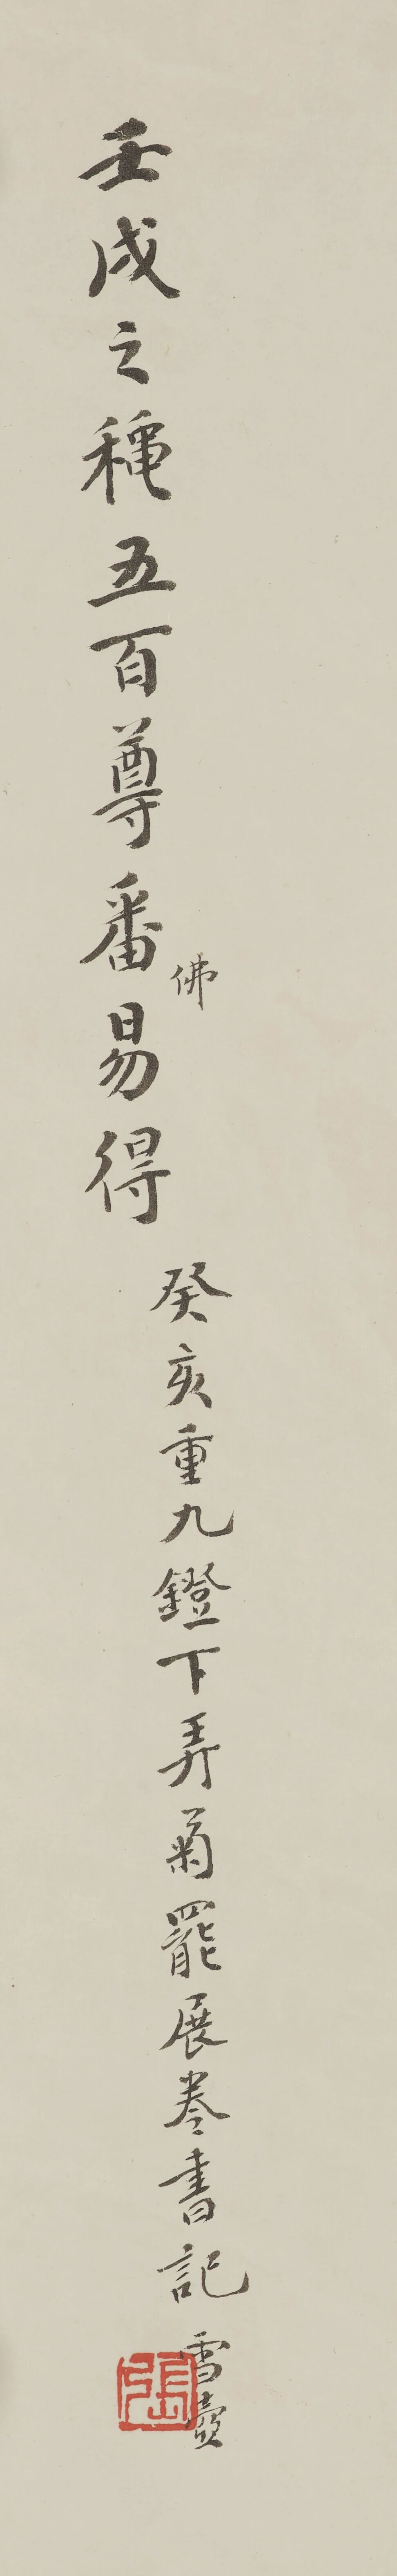 壬戌之龝五百尊番易得
佛
癸亥重九鐙下弄菊罷展卷書記
雪盦
張